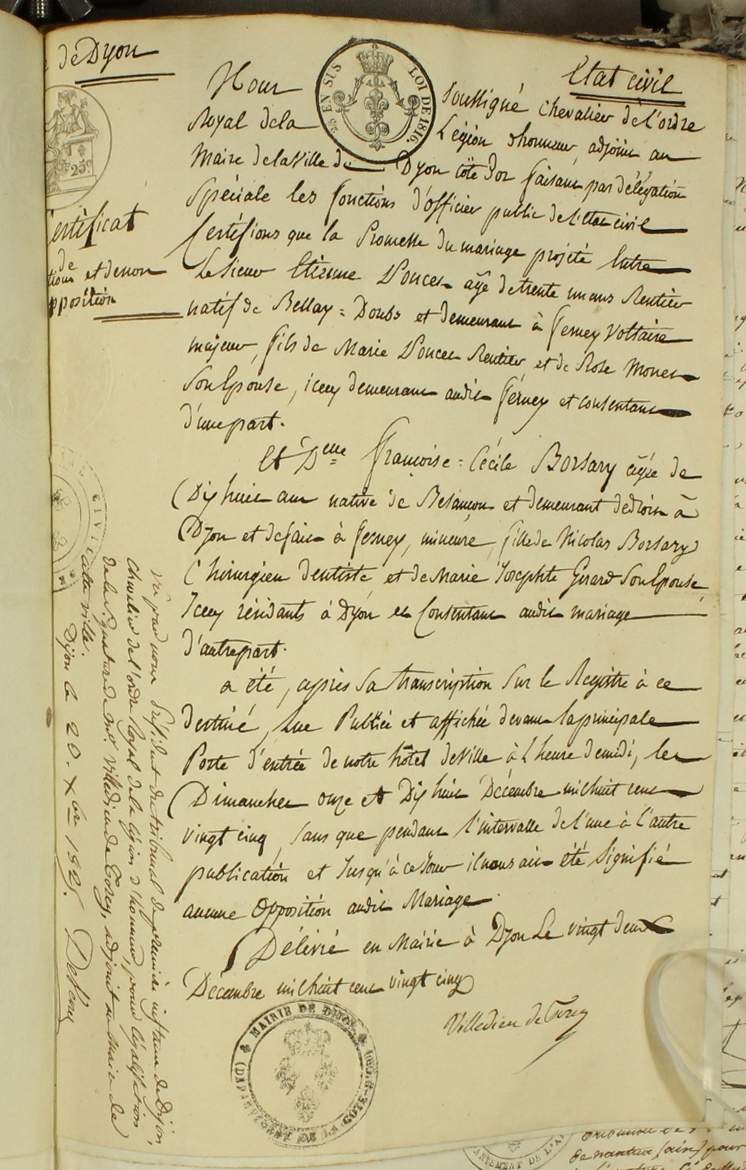 e de Dyon
Etat civil
EN SUS
LOI DE 1816
25c
Certificat
de
tions et de non
opposition
Nous soussigné chevalier de L'ordre
Royal de la Légion d'honneur adjoint au
Maire de la Ville de Dyon côte d'or faisant par délégation
Spéciale les fonctions d'officier public de l'état civil
Certifions que la Promesse du mariage projeté Entre
Le Sieur Etienne Poncet agé de trente un ans Rentier
natif de Bellay = Doubs et demeurant à Ferney Voltaire
majeur, fils de Marie Poncet Rentier et de Rose Monet
Son Epouse, icey demeurant audit Ferney et consentant
d'une part.
Et Delle Francoise = Cécile Borsary agée de
Dix huit ans native de Besancon et demeurant de droit à
Dyon et de fait à Ferney, mineure, fille de Nicolas Borsary
Chirurgien Dentiste et de Marie Josephte Gerard Son Epouse
Icey résidants à Dyon et Consentant audit mariage
d'autre part.
a été, après Sa transcription Sur le Registre à ce
destiné, Lue Publiée et affichée devant la principale
Porte d'entrée de notre hôtel de Ville à L'heure de midi, les
Dimanches onze et Dix huit Décembre mil huit cent
vingt cinq, Sans que pendant l'intervalle de l'une à l'autre
publication et Jusqu'à ce Jour il nous ait été Signifié
aucune Opposition audit Mariage.
Délivré en Mairie à Dyon Le vingt deux
Décembre mil huit cent vingt cinq
Villedieu de Torcy
MAIRIE DE DIJON
(DEPARTEMENT DE LA COTE-D'OR)
Vu par nous Président du tribunal de première instance de Dijon,
Chevalier de l'ordre Royal de la légion d'honneur, pour légalisation
de la Signature de Mr. Villedieu de Torcy, adjoint au Maire de
cette ville.
Dijon le 20. Xbre 1825.
CIVIL